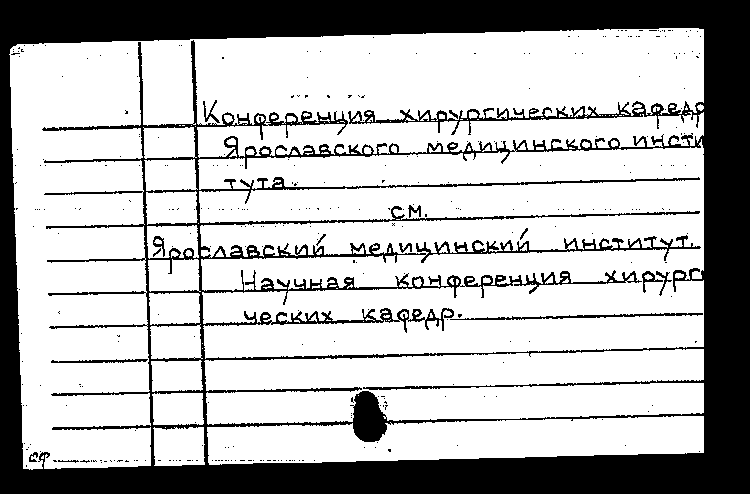 Конференция хирургических кафедр
Ярославского медицинского инсти
тута.
см.
Ярославский медицинский институт.
Научная конференция хирурги
ческих кафедр.
сф